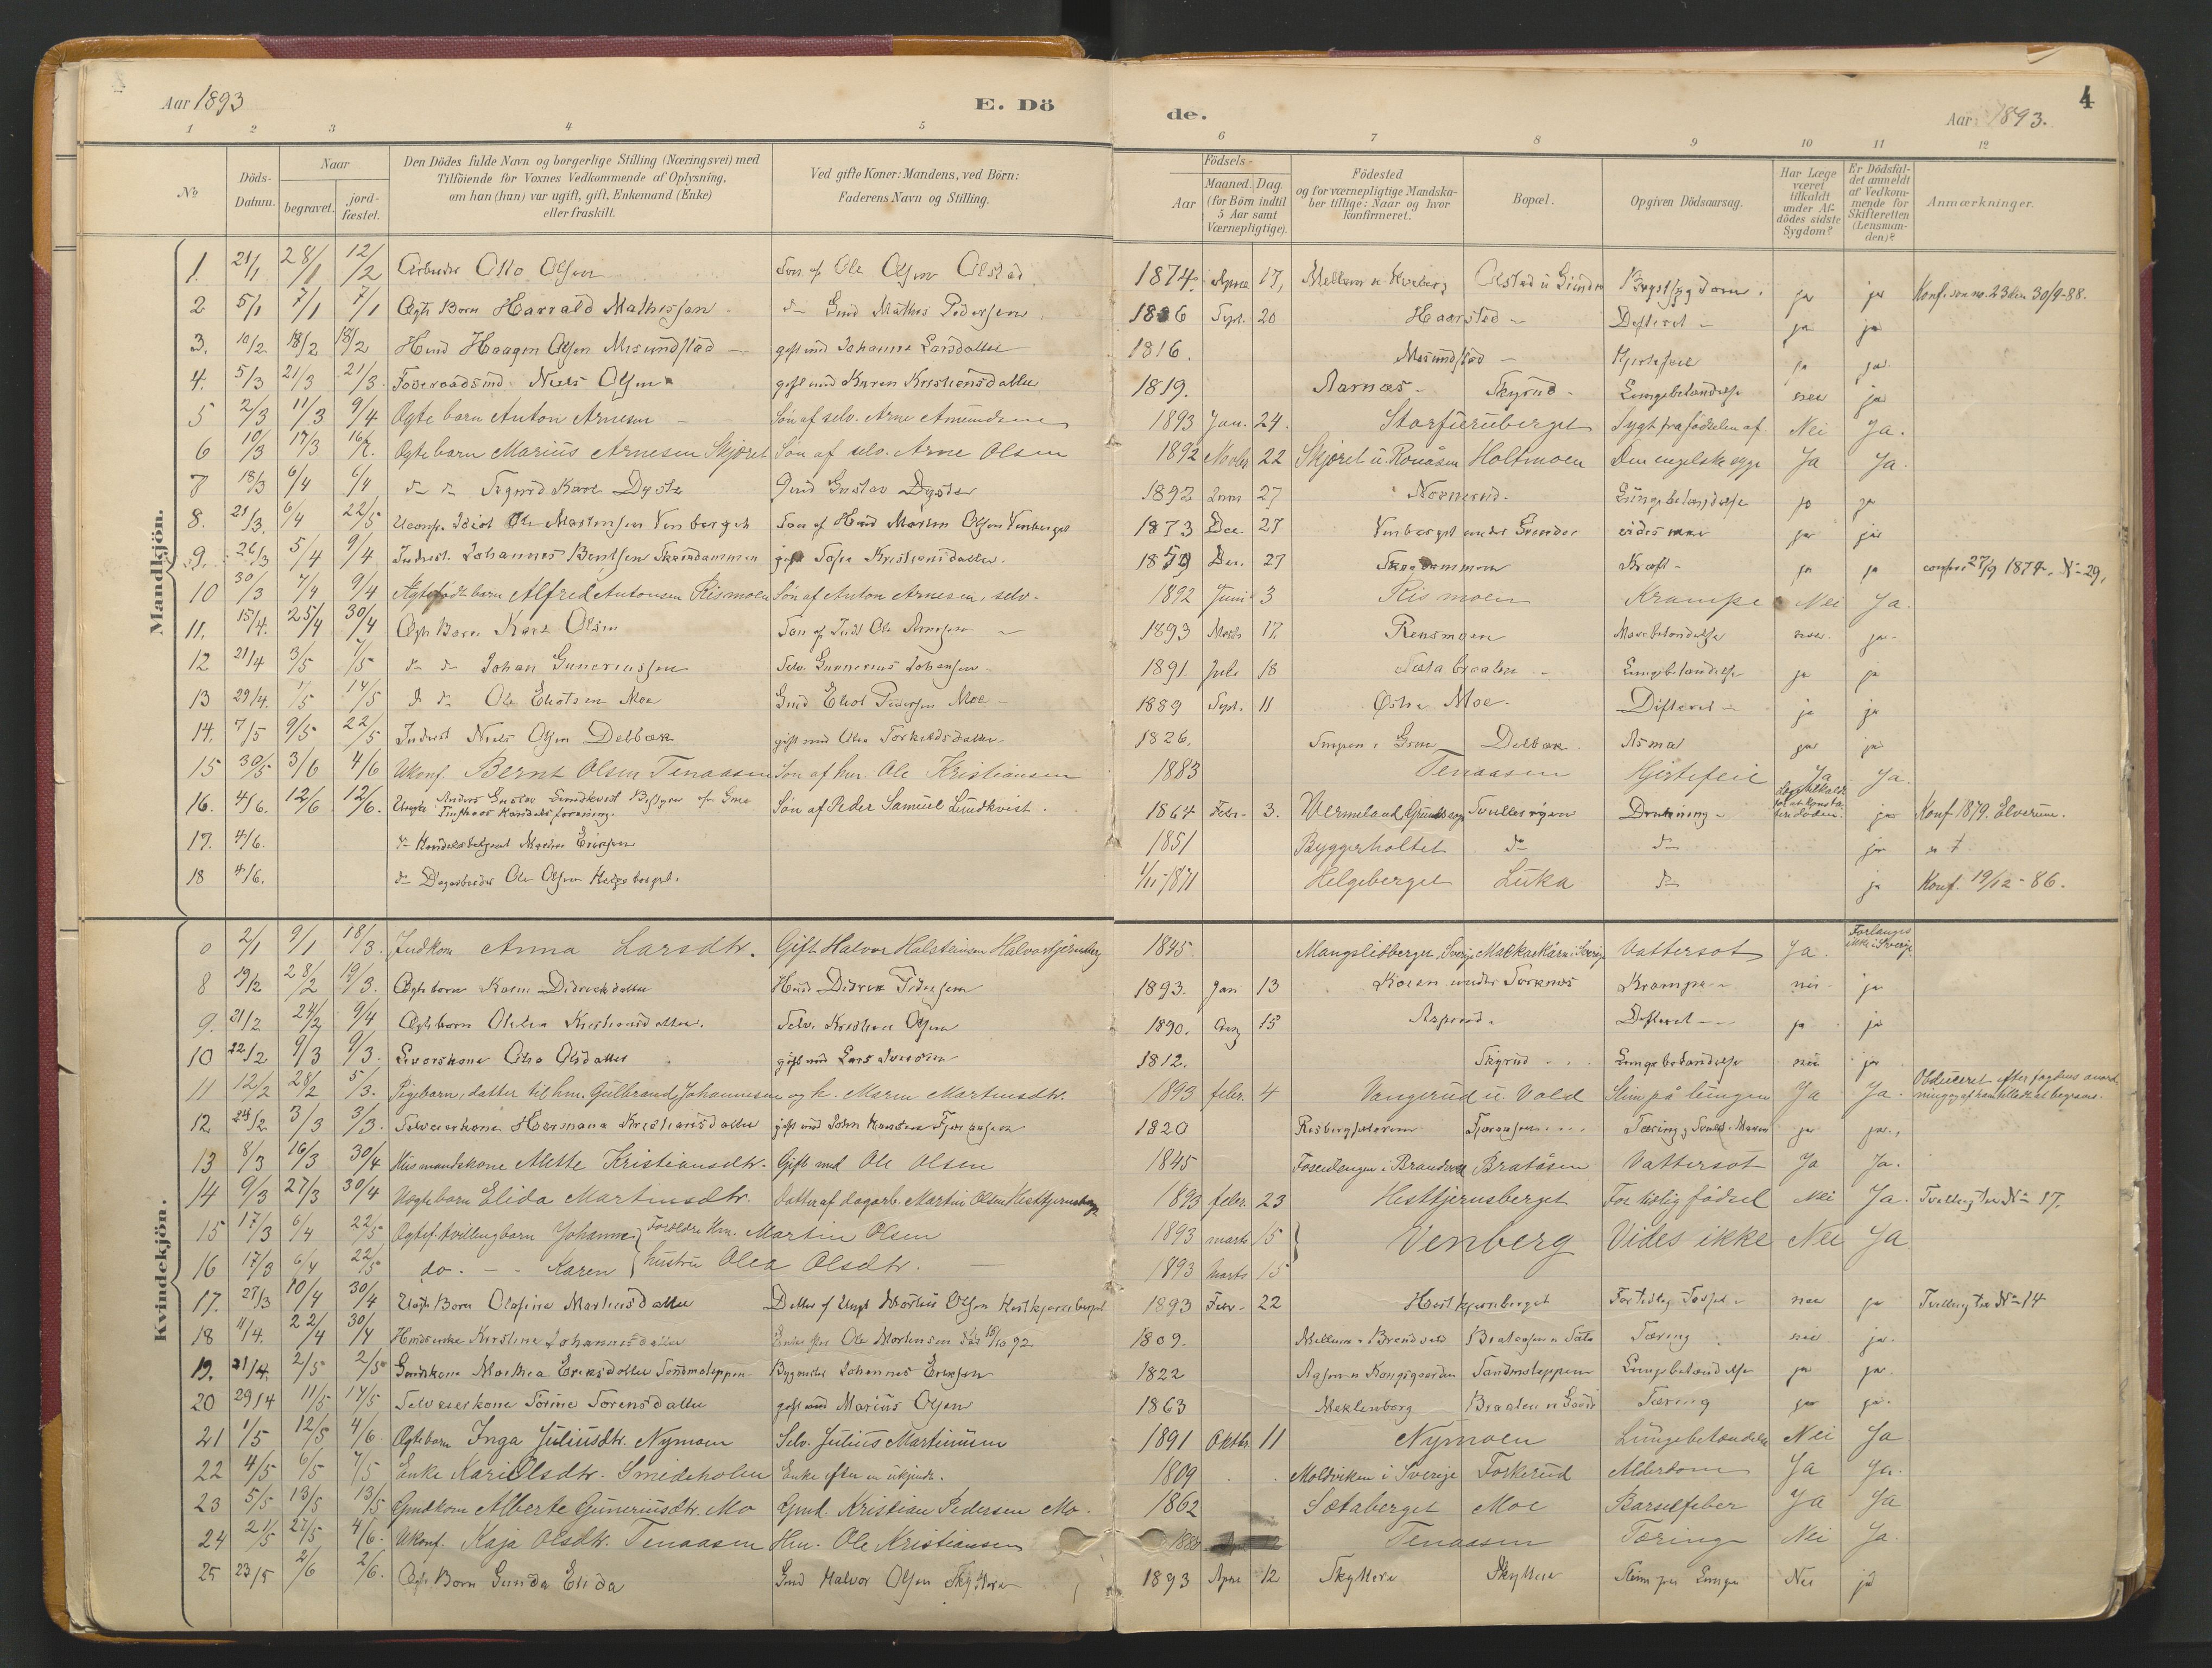 Aar 1893
E. Dö
de.
Aar 1893.
4
1 2 3 4 5 6 7 8 9 10 11 12
No
Döds-Datum.
Naar
begravet.
jord-fæstet.
Den Dödes fulde Navn og borgerlige Stilling (Næringsvei) med
Tilföiende for Voxnes Vedkommende af Oplysning,
om han (hun) var ugift, gift, Enkemand (Enke)
eller fraskilt.
Ved gifte Koner: Mandens, ved Börn:
Faderens Navn og Stilling.
Födsels-
Aar
Maaned. Dag.
(for Börn indtil
5 Aar samt
Værnepligtige).
Födested
og for værnepligtige Mandska-
ber tillige: Naar og hvor
konfirmeret.
Bopæl.
Opgiven Dödsaarsag.
Har Læge
været
tilkaldt
under Af-
dödes sidste
Sygdom?
Er Dödsfal-
det anmeldt
af Vedkom-
mende for
Skifteretten
(Lensman-
den)?
Anmærkninger.
Mandkjön.
1. 21/1 28/1 12/2 Arbeider Otto Olsen Søn af Ole Olsen Olstad 1874. April 17, Brystsygdom ja ja Konf. 30/9-88.
2 5/1 7/1 7/1 Ægte Barn Harrald Mathissen Gmd Mathis Pedersen 1886 Sept. 20 Haarstad Difterit ja ja
3. 10/2 18/2 18/2 Hmd Haagen Olsen Mesundstad gift med Johanne Larsdatter 1816. Mesundstad Hjertefeil ja ja
4. 5/3 21/3 21/3. Foderaadsmd Niels Olsen gift med Karen Kristiansdatter 1819. Aarnæs Skyrud Lungebetændelse nei ja
5 2/3 11/3 9/4 Ægte barn Anton Arnesen Søn af selv. Arne Amundsen 1893 Jan. 24. Storfuruberget Sygt fra fødselen af Nei Ja.
6 10/3 17/3 Ægte barn Marius Arnesen Skjøret Søn af selv. Arne Olsen 1892 Novbr 22 Skjøret u. Rouåsen Holtmoen Den engelske syge Ja Ja.
7 18/3 6/4 6/4 Sigurd Karl Dyste Gmd Gustav Dyste 1892 Juni 27 Lungebetændelse ja ja
8. 21/3. 6/4 22/5 Ukonf. Idiot Ole Martinsen Venberget Søn af Hmd Martin Olsen Venberget 1873 Dec. 27 Venberget under Grinder vides ikke ja ja
9. 26/3 5/4 9/4 Inderst. Johannes Bentsen Skasdammen gift Sofie Kristiansdatter. 1859 Dec. 27 Kræft ja ja confir. 27/9 1874, N-29,
10 30/3 7/4 9/4 Ægtefødt barn Alfred Antonsen Rismoen Søn af Anton Arnesen, selv. 1892 Juni 3 Rismoen Krampe Nei Ja.
11. 15/4. 25/4 30/4 Ægte Barn Karl Olsen Søn af Indt Ole Arnesen 1893 Marts 17. Rensmoen Mavebetændelse nei ja
12 21/4 3/5 7/5 Johan Gunerius­sen Selv. Gunnerius Johansen 1891 Juli 18 Sætabraaten Lungebetændelse ja ja
13 29/4. 1/5 14/5 Ole Eliotsen Moe Gmd Eliot Pedersen Moe 1889 Sept. 11 Østre Moe. Difterit ja ja
14. 7/5 9/5 22/5 Inderst Niels Olsen Delbæk gift med Olia Torkildsdatter 1826. Delbæk Asma ja ja
15 30/5 3/6 4/6 Ukonf. Bernt Olsen Tenaasen Søn af hm. Ole Kristiansen 1883 Tenaasen Hjertefeil Ja Ja.
16. 4/6. 12/6 12/6. Ungk. Anders Gustav Lundkvist Bestyrer af Grue Finskovs Handelsforening. Søn af Peder Samuel Lundkvist. 1864 Febr. 3. Vermeland Svullerøyen Drukning ja Konf 1879. Elverum.
17. 4/6. Handelsbetjent Martin Eriksen 1851 Byggerholtet ja
18 4/6. Dagarbeider Ole Olsen Helgeberget. 1/11-1871 Helgeberget Luka ja Konf. 19/12-86.
Kvindekjön.
0 2/1 9/1 18/3. Indkone Anna Larsdtr. Gift Halvor Halstensen Halvortjernsberg 1845. Mangslidberget, Sverige Vattersot Ja. Forlanges ikke i Sverige
8 19/2 28/2 19/3. Ægte barn Karen Didrecksdatter Hmd Didrik Pedersen 1893. Jan 13 Krampe nei ja
9. 21/2 24/2 9/4 Ægte barn Kristiansdatter. Selv. Kristian Olsen 1890. Aug 15 Difterit ja ja
10 22/2 9/3 9/3. Olia Olsdatter gift med Lars Iversen 1812. Skyrud Lungebetændelse nei ja
11 12/2 28/2 5/3. Pigebarn, datter til hm. Gulbrand Johannesen og h. Maren Martinsdtr. 1893 febr. 4 Vangerud u. Vold Slim på lungen Ja Ja. Obduceret efter
12. 24/2 3/3 3/3. Selveierkone Hermana Kristiansdatter gift med John 1820 Risbergsæteren Tæring ja ja.
13 8/3 16/3 30/4 Husmandskone Alette Kristiansdtr. Gift med Ole Olsen 1845 Bråtåsen Vattersot Ja Ja.
14 9/3 27/3 30/4 Uægte barn Elida Martinsdtr. Datter af dagarb. Martin Olsen Hesttjernsberget 1893 febr. 23 Hesttjernsberget For tidlig fødsel Nei Ja. Tvilling ter N- 17.
15 17/3 6/4 22/5 Ægtef. tvillingbarn Johanne Forældre Hm. Martin Olsen 1893 marts 15 Venberg Vides ikke Nei Ja
16 17/3 6/4 22/5 do. Karen hustru Olea Olsdtr. 1893 Marts 15
17. 27/3 10/4 30/4 Uægte Barn Olefine Martinsdatter Datter af Ungk Martin Olsen Hesttjernsberget 1893 Febr. 22 Hesttjernsberget For tidlig Fødsel nei ja Tvilling ter N-14
18 11/4. 22/4 30/4 Husmdsenke Kirstine Johannesdatter Enke efter Ole Mortensen død 15/10 92 1809. Tæring nei ja.
19. 21/4. 2/5 2/5 Gaardkone Marthea Eriksdatter Sandmoteppen Bygmester Johannes Eriksen 1822 Sandmoteppen Lungebetændelse ja ja
20 29/4 11/5 14/5 Selveierkone Torine Torensdatter gift med Marius Olsen 1863 Meklenborg Tæring ja ja.
21 1/5 12/5 4/6. Ægtebarn Inga Juliusdtr. Nymoen Selv. Julius Martinusen 1891 Oktbr. 11 Nymoen Lungebetændelse Nei Ja
22 4/5 6/5 7/5 Enke Kari Olsdtr. Smedeholen Enke efter en ukjendt. 1809 Moldviken i Sverige Torkerud Alderdom Ja Ja.
23 5/5 13/5 13/5 Gmdkone Alberte Guneriusdtr. Mo Gmd. Kristian Pedersen Mo. 1862 Sætaberget Moe Barselfeber Ja Ja
24 21/5 27/5 4/6. Ukonf. Kaja Olsdtr. Tenaasen Hm. Ole Kristiansen Tenaasen Tæring Nei Ja.
25 23/5 2/6 2/6. Ægte Barn Gunda Elida Gmd Halvor Olsen Skyttern 1893 April 12 Skyttern Skyttern Slim paa Lungen Nei ja